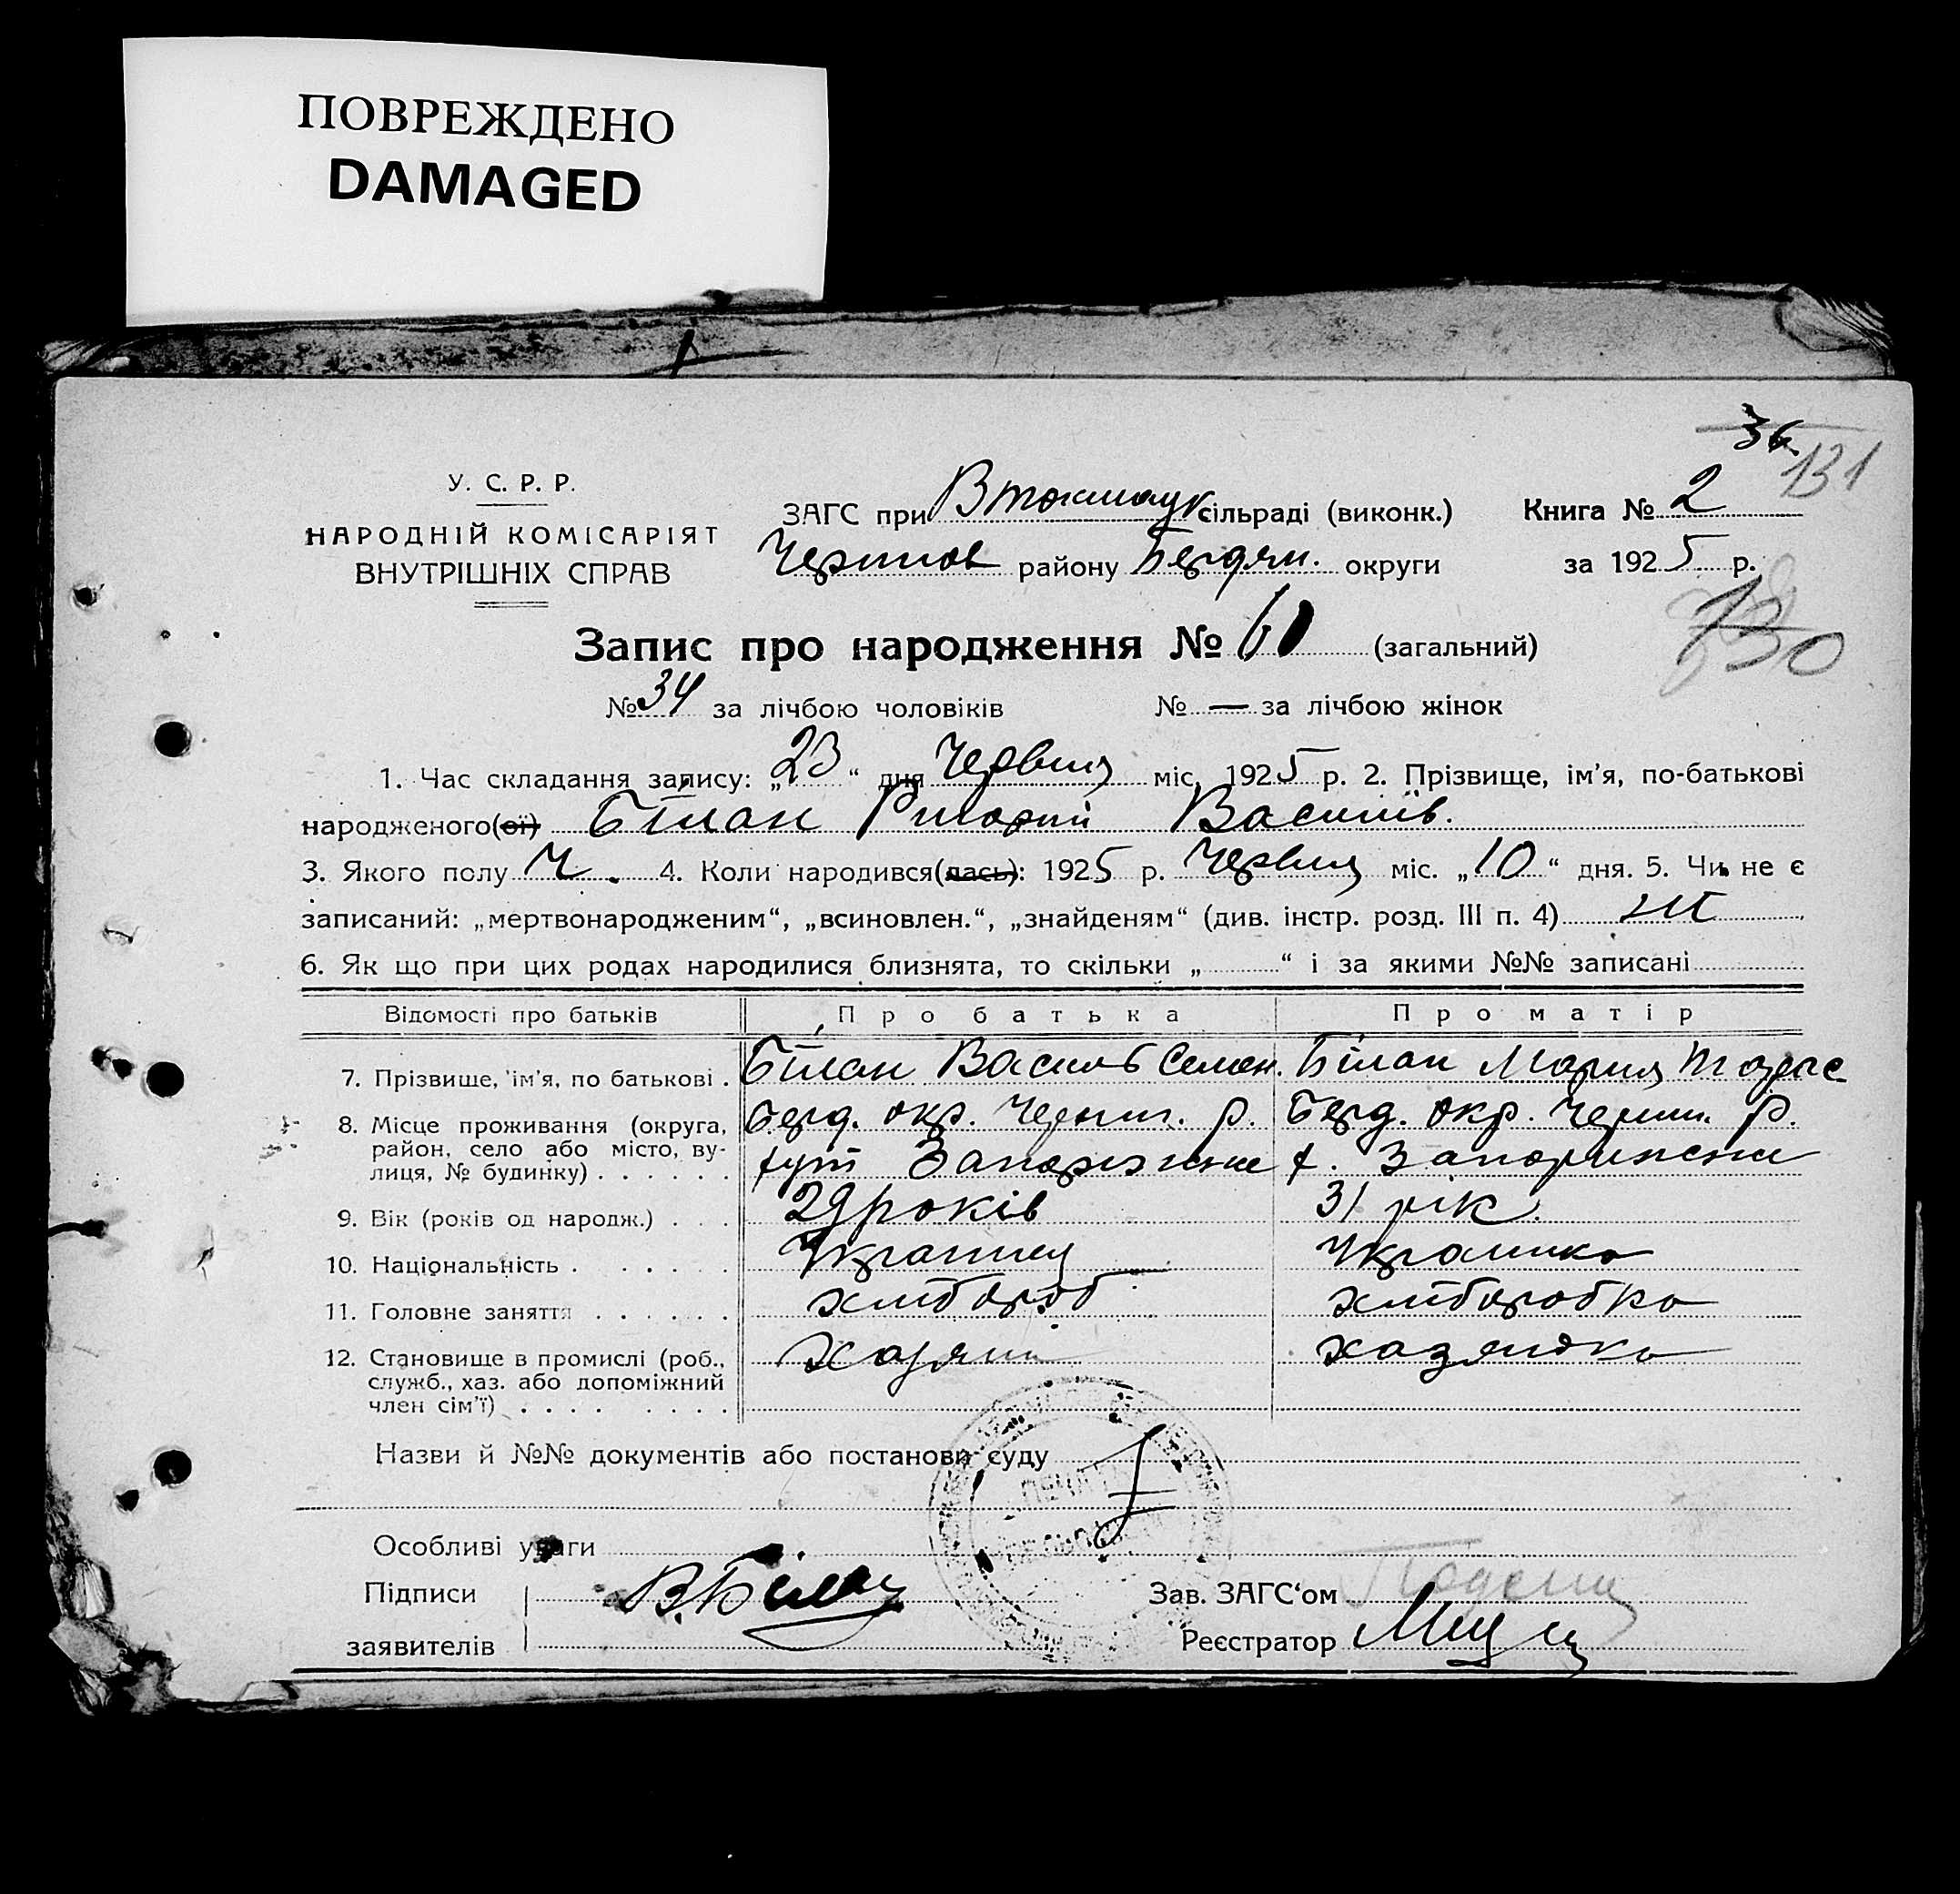 ПОВРЕЖДЕНО
DAMAGED
36
131
У. С. Р. Р.
НАРОДНІЙ КОМІСАРІЯТ
ВНУТРІШНІХ СПРАВ
ЗАГС при В токмацк сільраді (виконк.) Книга № 2
Черниг району Бердян. округи за 1925 р.
130
Запис про народження № 60 (загальний)
№ 34 за лічбою чоловіків № — за лічбою жінок
1. Час складання запису: „23“ дня Червня міс. 1925 р. 2. Прізвище, ім'я, по-батькові
народженого(ої) Білан Григорій Василів.
3. Якого полу Ч. 4. Коли народився(лась): 1925 р. Червня міс. „10“ дня. 5. Чи не є
записаний: „мертвонародженим“, „всиновлен.“, „знайденям“ (див. інстр. розд. III п. 4) ні
6. Як що при цих родах народилися близнята, то скільки „ “ і за якими №№ записані
Відомості про батьків Про батька Про матір
7. Прізвище, ім'я, по батькові . Білан Василь Семен. Білан Мария
8. Місце проживання (округа, район, село або місто, вулиця, № будинку) . . . . . . Берд. окр. Черниг. р. Берд. окр. Черниг. р.
хут Запоріжжя х. Запорижжя
9. Вік (років од народж.) . . . 29 років 31 рік.
10. Національність . . . . . . Українец Українка
11. Головне заняття . . . . . . хлібороб хліборобка
12. Становище в промислі (роб., служб., хаз. або допоміжний член сім'ї) . . . . . . . . Хазяїн хазяйка
Назви й №№ документів або постанови суду
Особливі уваги
Підписи В. Білан Зав. ЗАГС‘ом
заявителів Реєстратор